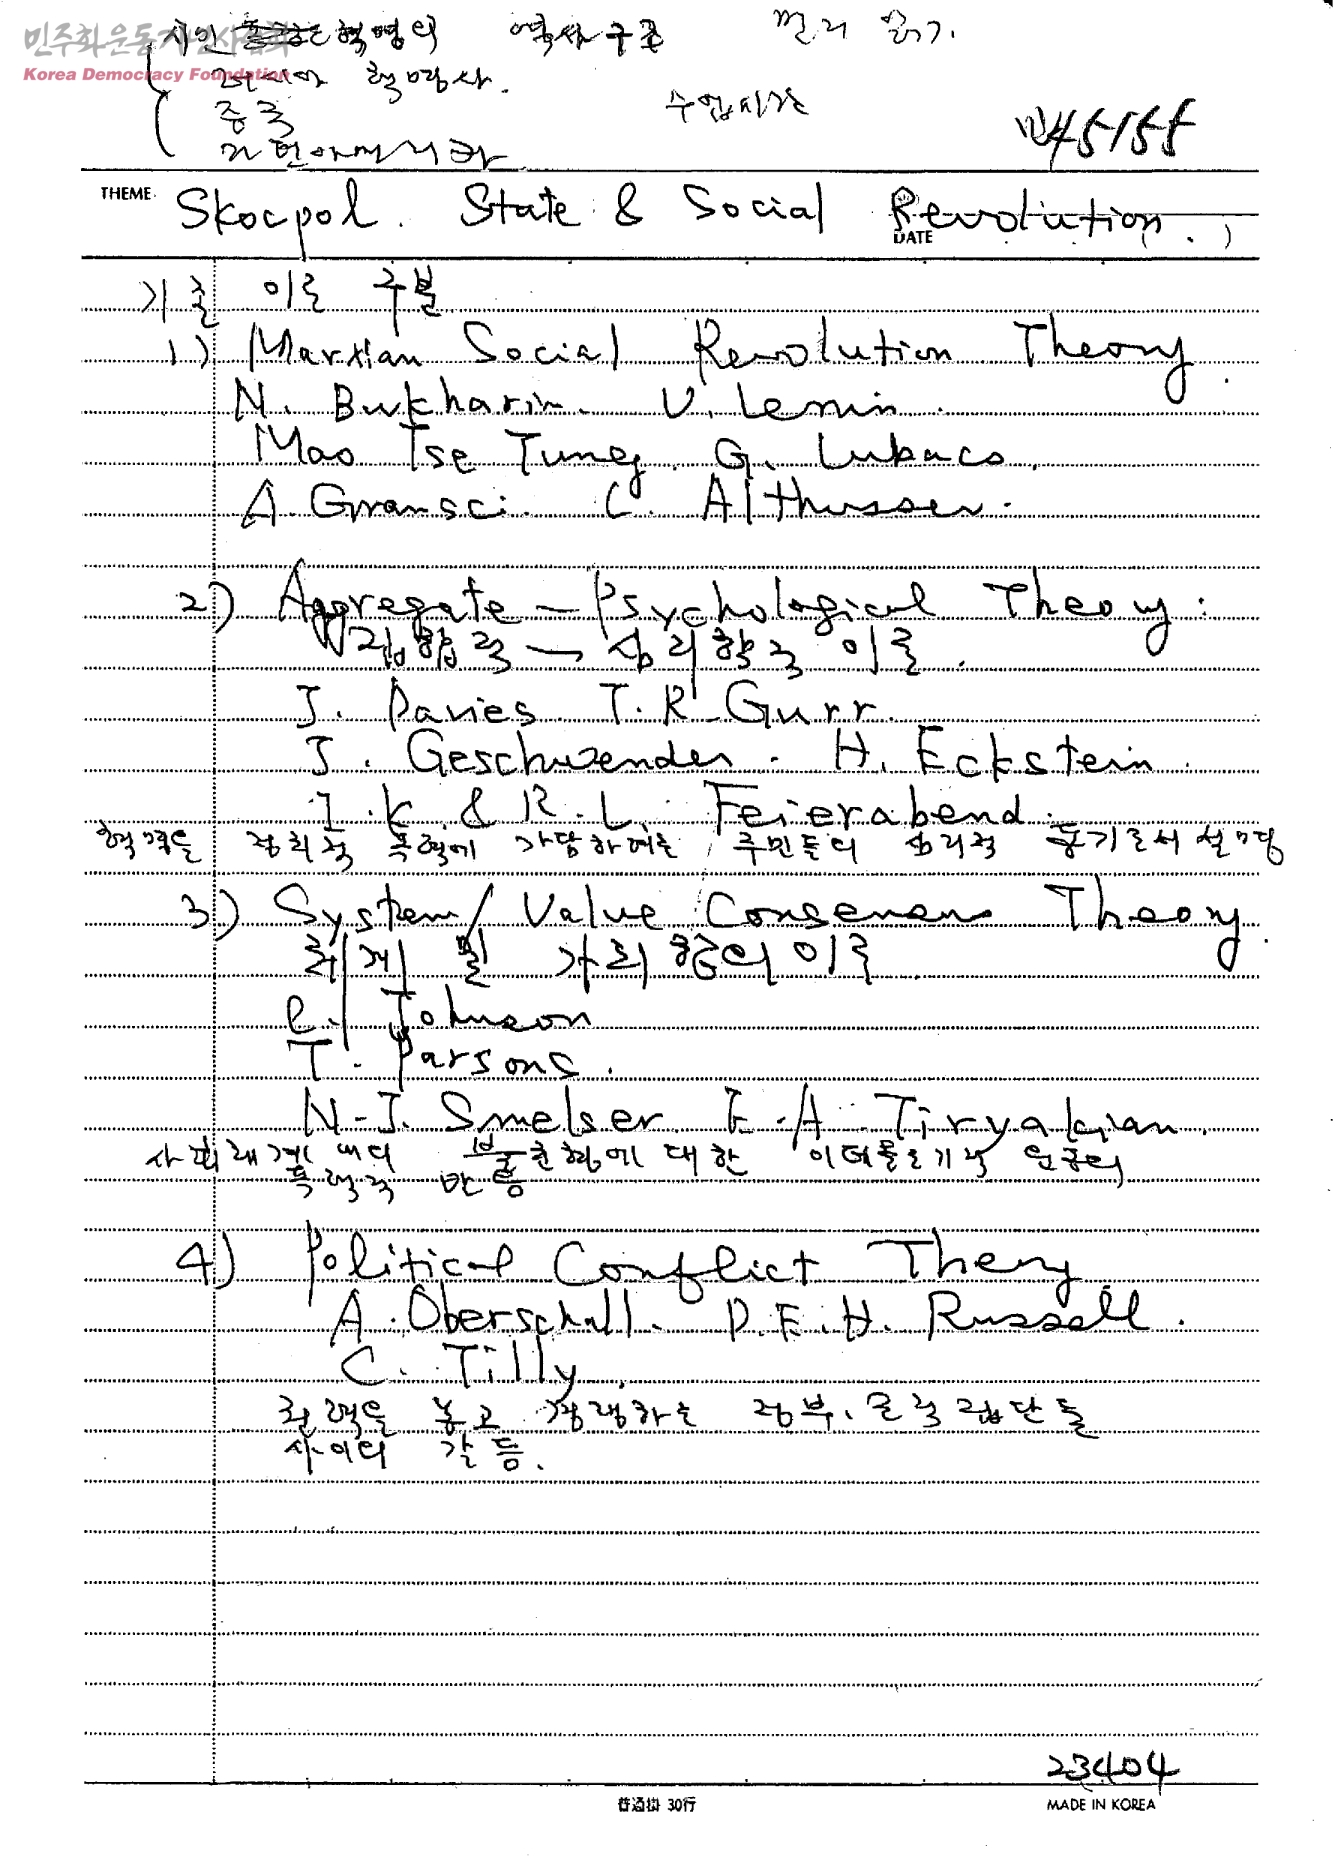 민주화운동기념사업회
Korea Democracy Foundation
시민 혁명의 역사구조 멀리 읽기.
러시아 혁명사.
중국
수업시간
45155
THEME
Skocpol. State & Social Revolution
DATE ( . . )
기존 이론 구분
1) Marxian Social Revolution Theory.
N. Bukharin. V. Lenin.
Mao Tse Tung. G. Lukacs.
A. Gramsci. L. Althusser.
2) Aggregate-Psychological Theory:
집합적 - 심리학적 이론.
J. Davies T. R. Gurr.
J. Geschwender. H. Eckstein.
I. K. & R. L. Feierabend.
혁명을 정치적 폭력에 가담하려는 주민들의 심리적 동기로서 설명
3) System/Value Consensus Theory.
체계 및 가치 이론
C. Johnson
T. Parsons.
N. J. Smelser. E. A. Tiryakian.
사회체계 내의 불균형에 대한 이데올로기적
폭력적 반응
4) Political Conflict Theory
A. Oberschall. D. E. H. Russell.
C. Tilly.
권력을 놓고 경쟁하는 정부, 조직집단들
사이의 갈등.
23404
普通掛 30行
MADE IN KOREA